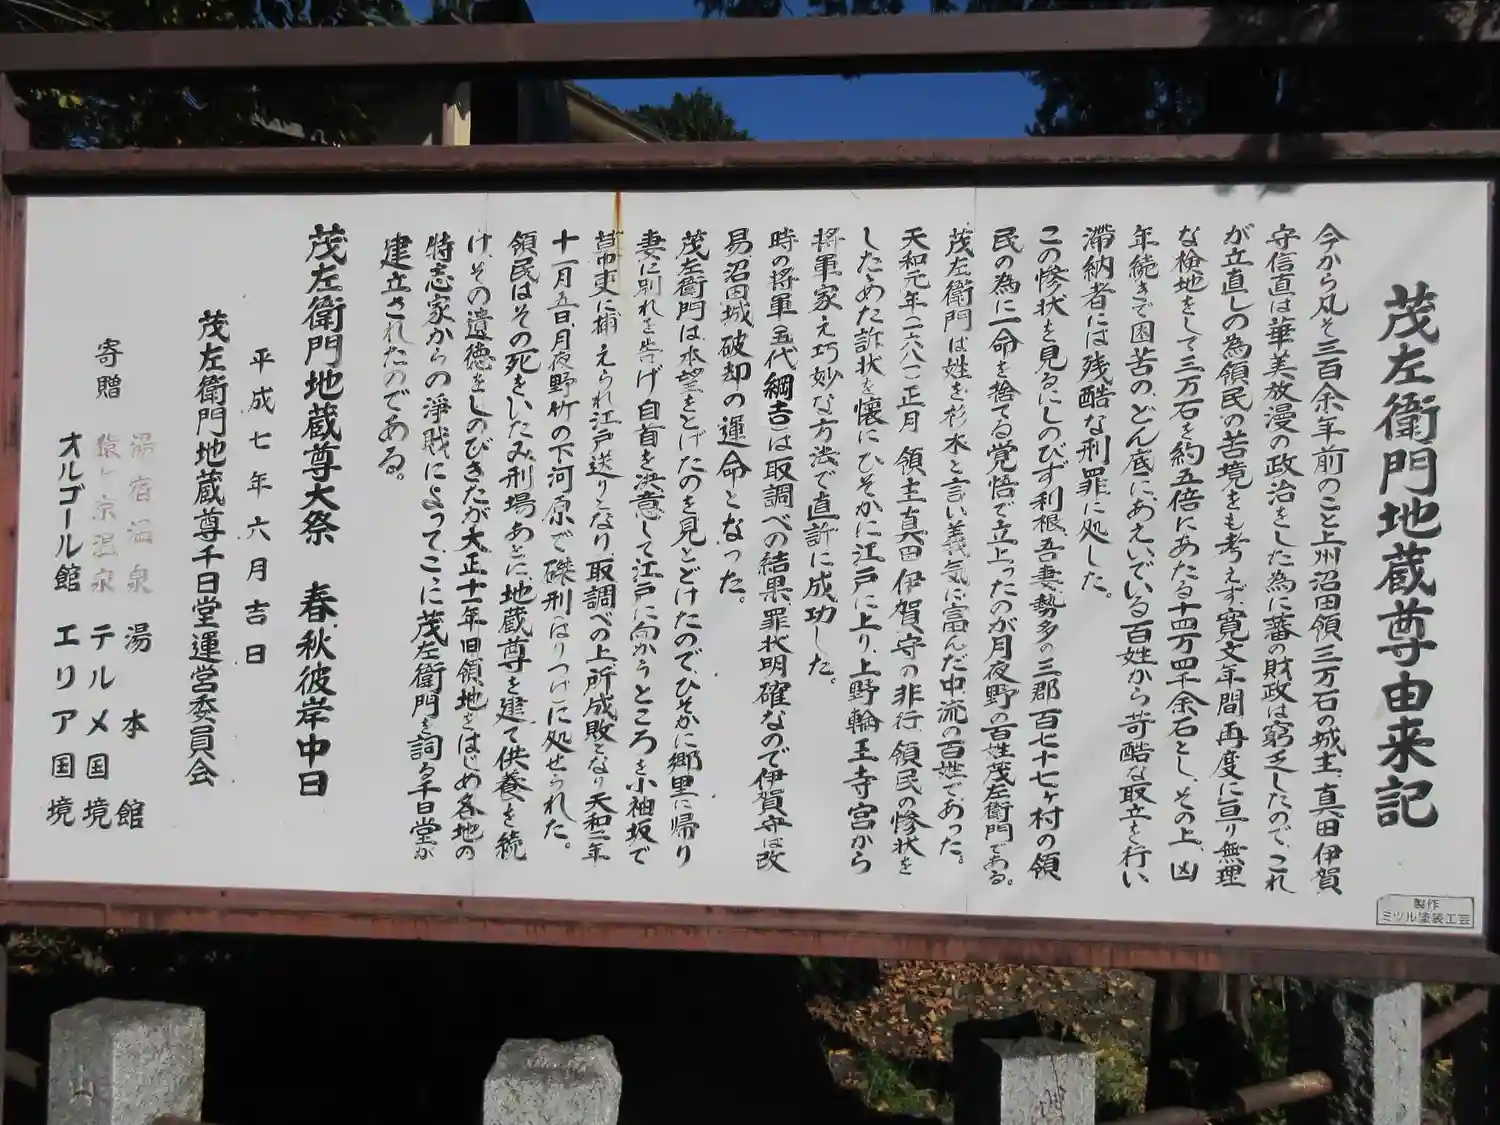 茂左衛門地蔵尊由来記
今から凡そ三百余年前のこと上州沼田領三万石の城主、真田伊賀
守信直は華美放漫の政治をした為に藩の財政は窮乏したので、これ
が立直しの為領民の苦境をも考えず、寛文年間再度に亘り無理
な検地をして三万石を約五倍にあたる十四万四千余石とし、その上、凶
年続きで困苦の、どん底にあえいでいる百姓から苛酷な取立を行い
滞納者には残酷な刑罪に処した。
この惨状を見るにしのびず利根、吾妻、勢多の三郡百七十七ヶ村の領
民の為に一命を捨てる覚悟で立上ったのが月夜野の百姓茂左衛門である。
茂左衛門は姓を杉木と言い義気に富んだ中流の百姓であった。
天和元年(一六八一)正月 領主真田伊賀守の非行、領民の惨状を
したためた訴状を懐にひそかに江戸に上り、上野輪王寺宮から
将軍家え巧妙な方法で直訴に成功した。
時の将軍(五代綱吉)は取調べの結果、罪状明確なので伊賀守は改
易沼田城破却の運命となった。
茂左衛門は、本望をとげたのを見とどけたので、ひそかに郷里に帰り
妻に別れを告げ自首を決意して江戸に向かうところを小袖坂で
幕吏に捕えられ江戸送りとなり、取調べの上所成敗となり天和二年
十一月五日、月夜野竹の下河原で磔刑(はりつけ)に処せられた。
領民はその死をいたみ刑場あとに地蔵尊を建て供養を続
け、その遺徳をしのびきたが大正十一年、旧領地をはじめ各地の
特志家からの浄財によって、こゝに茂左衛門を祠る千日堂が
建立されたのである。
茂左衛門地蔵尊大祭 春秋彼岸中日
平成七年六月吉日
茂左衛門地蔵尊千日堂運営委員会
寄贈
湯宿温泉 湯本館
猿ヶ京温泉 テルメ国境
オルゴール館 エリア国境
製作
ミツル塗装工芸